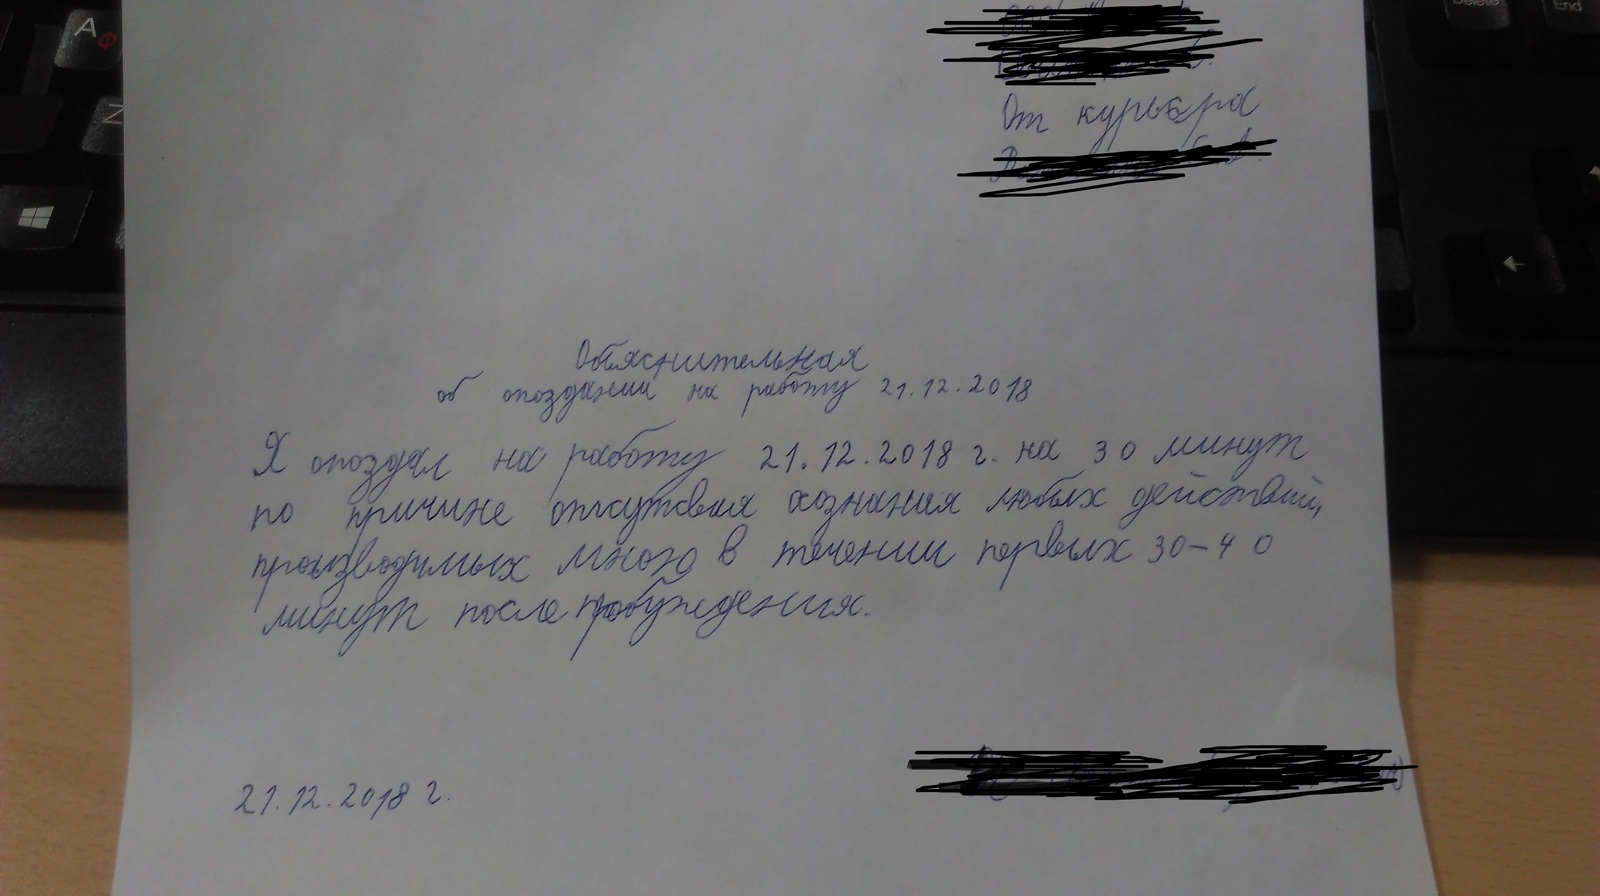 A Ф
Z
Delete
End
От курьера
Объяснительная
об опоздании на работу 21.12.2018
Я опоздал на работу 21.12.2018 г. на 30 минут
по причине отсутсвия осознания любых действий,
производимых мною в течении первых 30-40
минут после пробуждения.
21.12.2018 г.